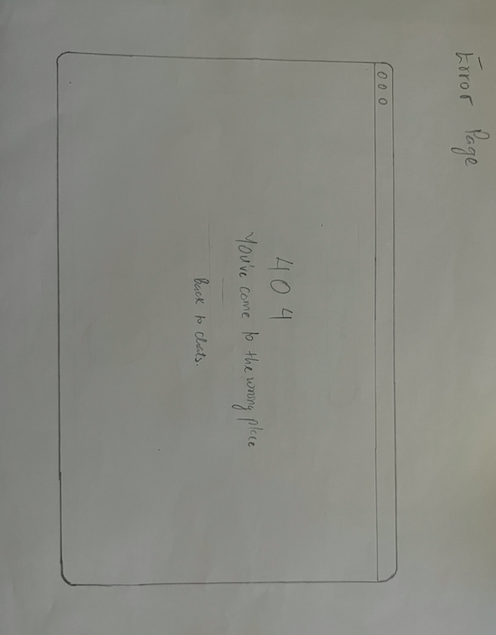 Error Page
000
404
You've come to the wrong place
Back to chats.